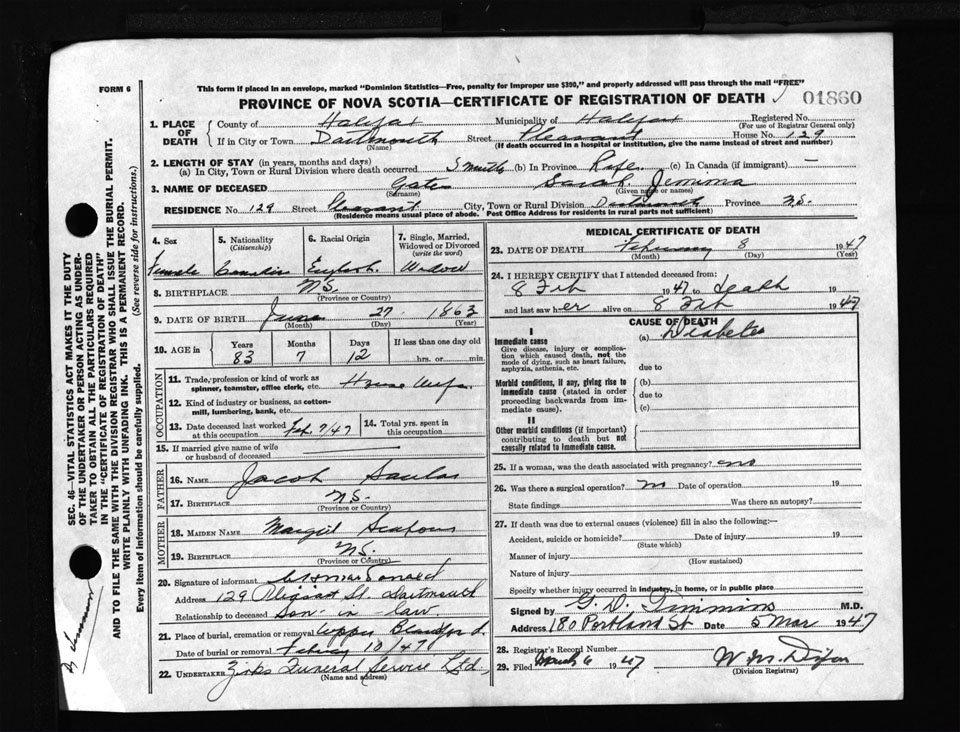 FORM 6
This form if placed in an envelope, marked "Dominion Statistics—Free, penalty for improper use $300," and properly addressed will pass through the mail "FREE"
PROVINCE OF NOVA SCOTIA—CERTIFICATE OF REGISTRATION OF DEATH 01860
1. PLACE OF DEATH County of Halifax Municipality of Halifax Registered No.
(For use of Registrar General only)
If in City or Town Dartmouth Street Pleasant House No. 129
(Name) (If death occurred in a hospital or institution, give the name instead of street and number)
2. LENGTH OF STAY (in years, months and days)
(a) In City, Town or Rural Division where death occurred 3 months (b) In Province Life (c) In Canada (if immigrant) —
3. NAME OF DECEASED Gates Sarah Jemima
(Surname) (Given name or names)
RESIDENCE No. 129 Street Pleasant City, Town or Rural Division Dartmouth Province N.S.
(Residence means usual place of abode. Post Office Address for residents in rural parts not sufficient)
4. Sex 5. Nationality (Citizenship) 6. Racial Origin 7. Single, Married, Widowed or Divorced (write the word)
Female Canadian English Widow
8. BIRTHPLACE N.S.
(Province or Country)
9. DATE OF BIRTH June 27 1863
(Month) (Day) (Year)
10. AGE in Years Months Days If less than one day old
83 7 12 hrs. or min.
OCCUPATION
11. Trade, profession or kind of work as spinner, teamster, office clerk, etc. House Wife
12. Kind of industry or business, as cotton-mill, lumbering, bank, etc.
13. Date deceased last worked at this occupation Feb. 7/47 14. Total yrs. spent in this occupation
15. If married give name of wife or husband of deceased
FATHER
16. NAME Jacob
17. BIRTHPLACE N.S.
(Province or Country)
MOTHER
18. MAIDEN NAME
19. BIRTHPLACE N.S.
(Province or Country)
20. Signature of informant
Address 129 Pleasant St. Dartmouth
Relationship to deceased Son-in law.
21. Place of burial, cremation or removal Upper Blandford
Date of burial or removal February 10/47
22. UNDERTAKER Zinks Funeral Service Ltd.,
(Name and address)
MEDICAL CERTIFICATE OF DEATH
23. DATE OF DEATH February 8 1947
(Month) (Day) (Year)
24. I HEREBY CERTIFY that I attended deceased from:
8 Feb 1947 to death
and last saw her alive on 8 Feb 1947
CAUSE OF DEATH
I
Immediate cause (a) Diabetes
Give disease, injury or complication which caused death, not the mode of dying, such as heart failure, asphyxia, asthenia, etc.
due to
Morbid conditions, if any, giving rise to immediate cause (stated in order proceeding backwards from immediate cause).
(b)
due to
(c)
II
Other morbid conditions (if important) contributing to death but not causally related to immediate cause.
25. If a woman, was the death associated with pregnancy? no
26. Was there a surgical operation? no Date of operation 19
State findings Was there an autopsy?
27. If death was due to external causes (violence) fill in also the following:—
Accident, suicide or homicide? Date of injury 19
(State which)
Manner of injury
(How sustained)
Nature of injury
Specify whether injury occurred in industry, in home, or in public place
Signed by G. D. Timmins M.D.
Address 180 Portland St Date 5 Mar 1947
28. Registrar's Record Number
29. Filed March 6 1947 W M Dixon
(Division Registrar)
SEC. 46—VITAL STATISTICS ACT MAKES IT THE DUTY
OF THE UNDERTAKER OR PERSON ACTING AS UNDER-
TAKER TO OBTAIN ALL THE PARTICULARS REQUIRED
IN THE "CERTIFICATE OF REGISTRATION OF DEATH"
AND TO FILE THE SAME WITH THE DIVISION REGISTRAR WHO SHALL ISSUE THE BURIAL PERMIT.
WRITE PLAINLY WITH UNFADING INK. THIS IS A PERMANENT RECORD.
Every item of information should be carefully supplied. (See reverse side for instructions.)